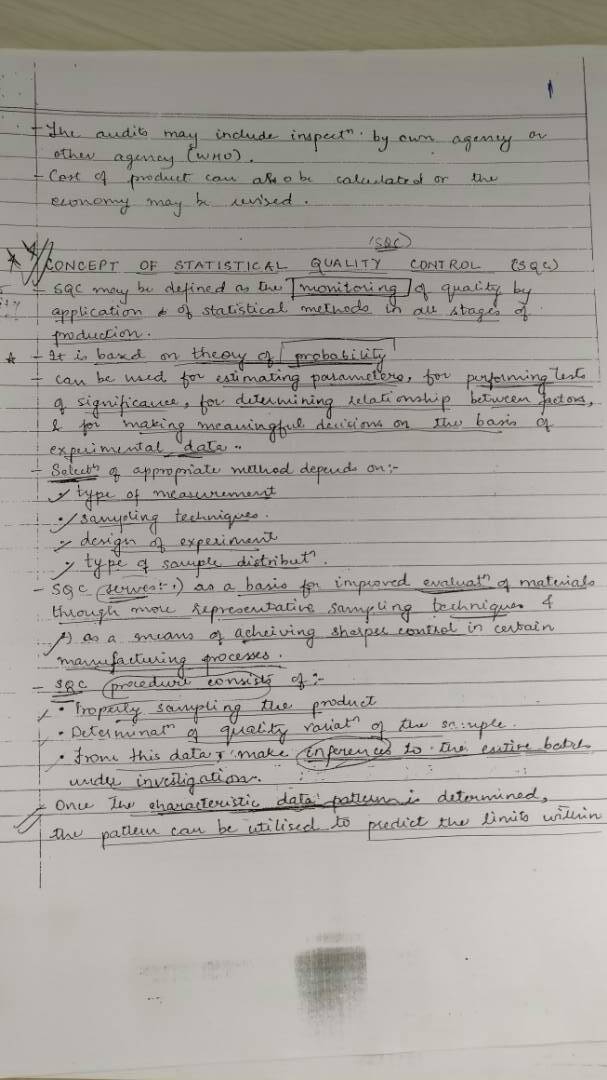 - The audits may include inspectn. by own agency or
other agency (WHO).
- Cost of product can also be calculated or the
economy may be revised.
(SQC)
CONCEPT OF STATISTICAL QUALITY CONTROL (SQC)
- SQC may be defined as the monitoring of quality by
application & of statistical methods in all stages of
production.
- It is based on theory of probability
- can be used for estimating parameters, for performing tests
of significance, for determining relationship between factors,
& for making meaningful decisions on the basis of
experimental data.
- Selectn of appropriate method depends on:-
• type of measurement
• sampling techniques.
• design of experiment
• type of sample distributn.
- SQC serves:- 1) as a basis for improved evaluatn of materials
through more representative sampling techniques &
2) as a means of acheiving sharper control in certain
manufacturing processes.
- SQC procedure consists of:-
• Properly sampling the product
• Determinatn of quality variatn of the sample.
• from this data, make inferences to the entire batch
under investigation.
- Once the characteristic data pattern is determined,
the pattern can be utilised to predict the limits within